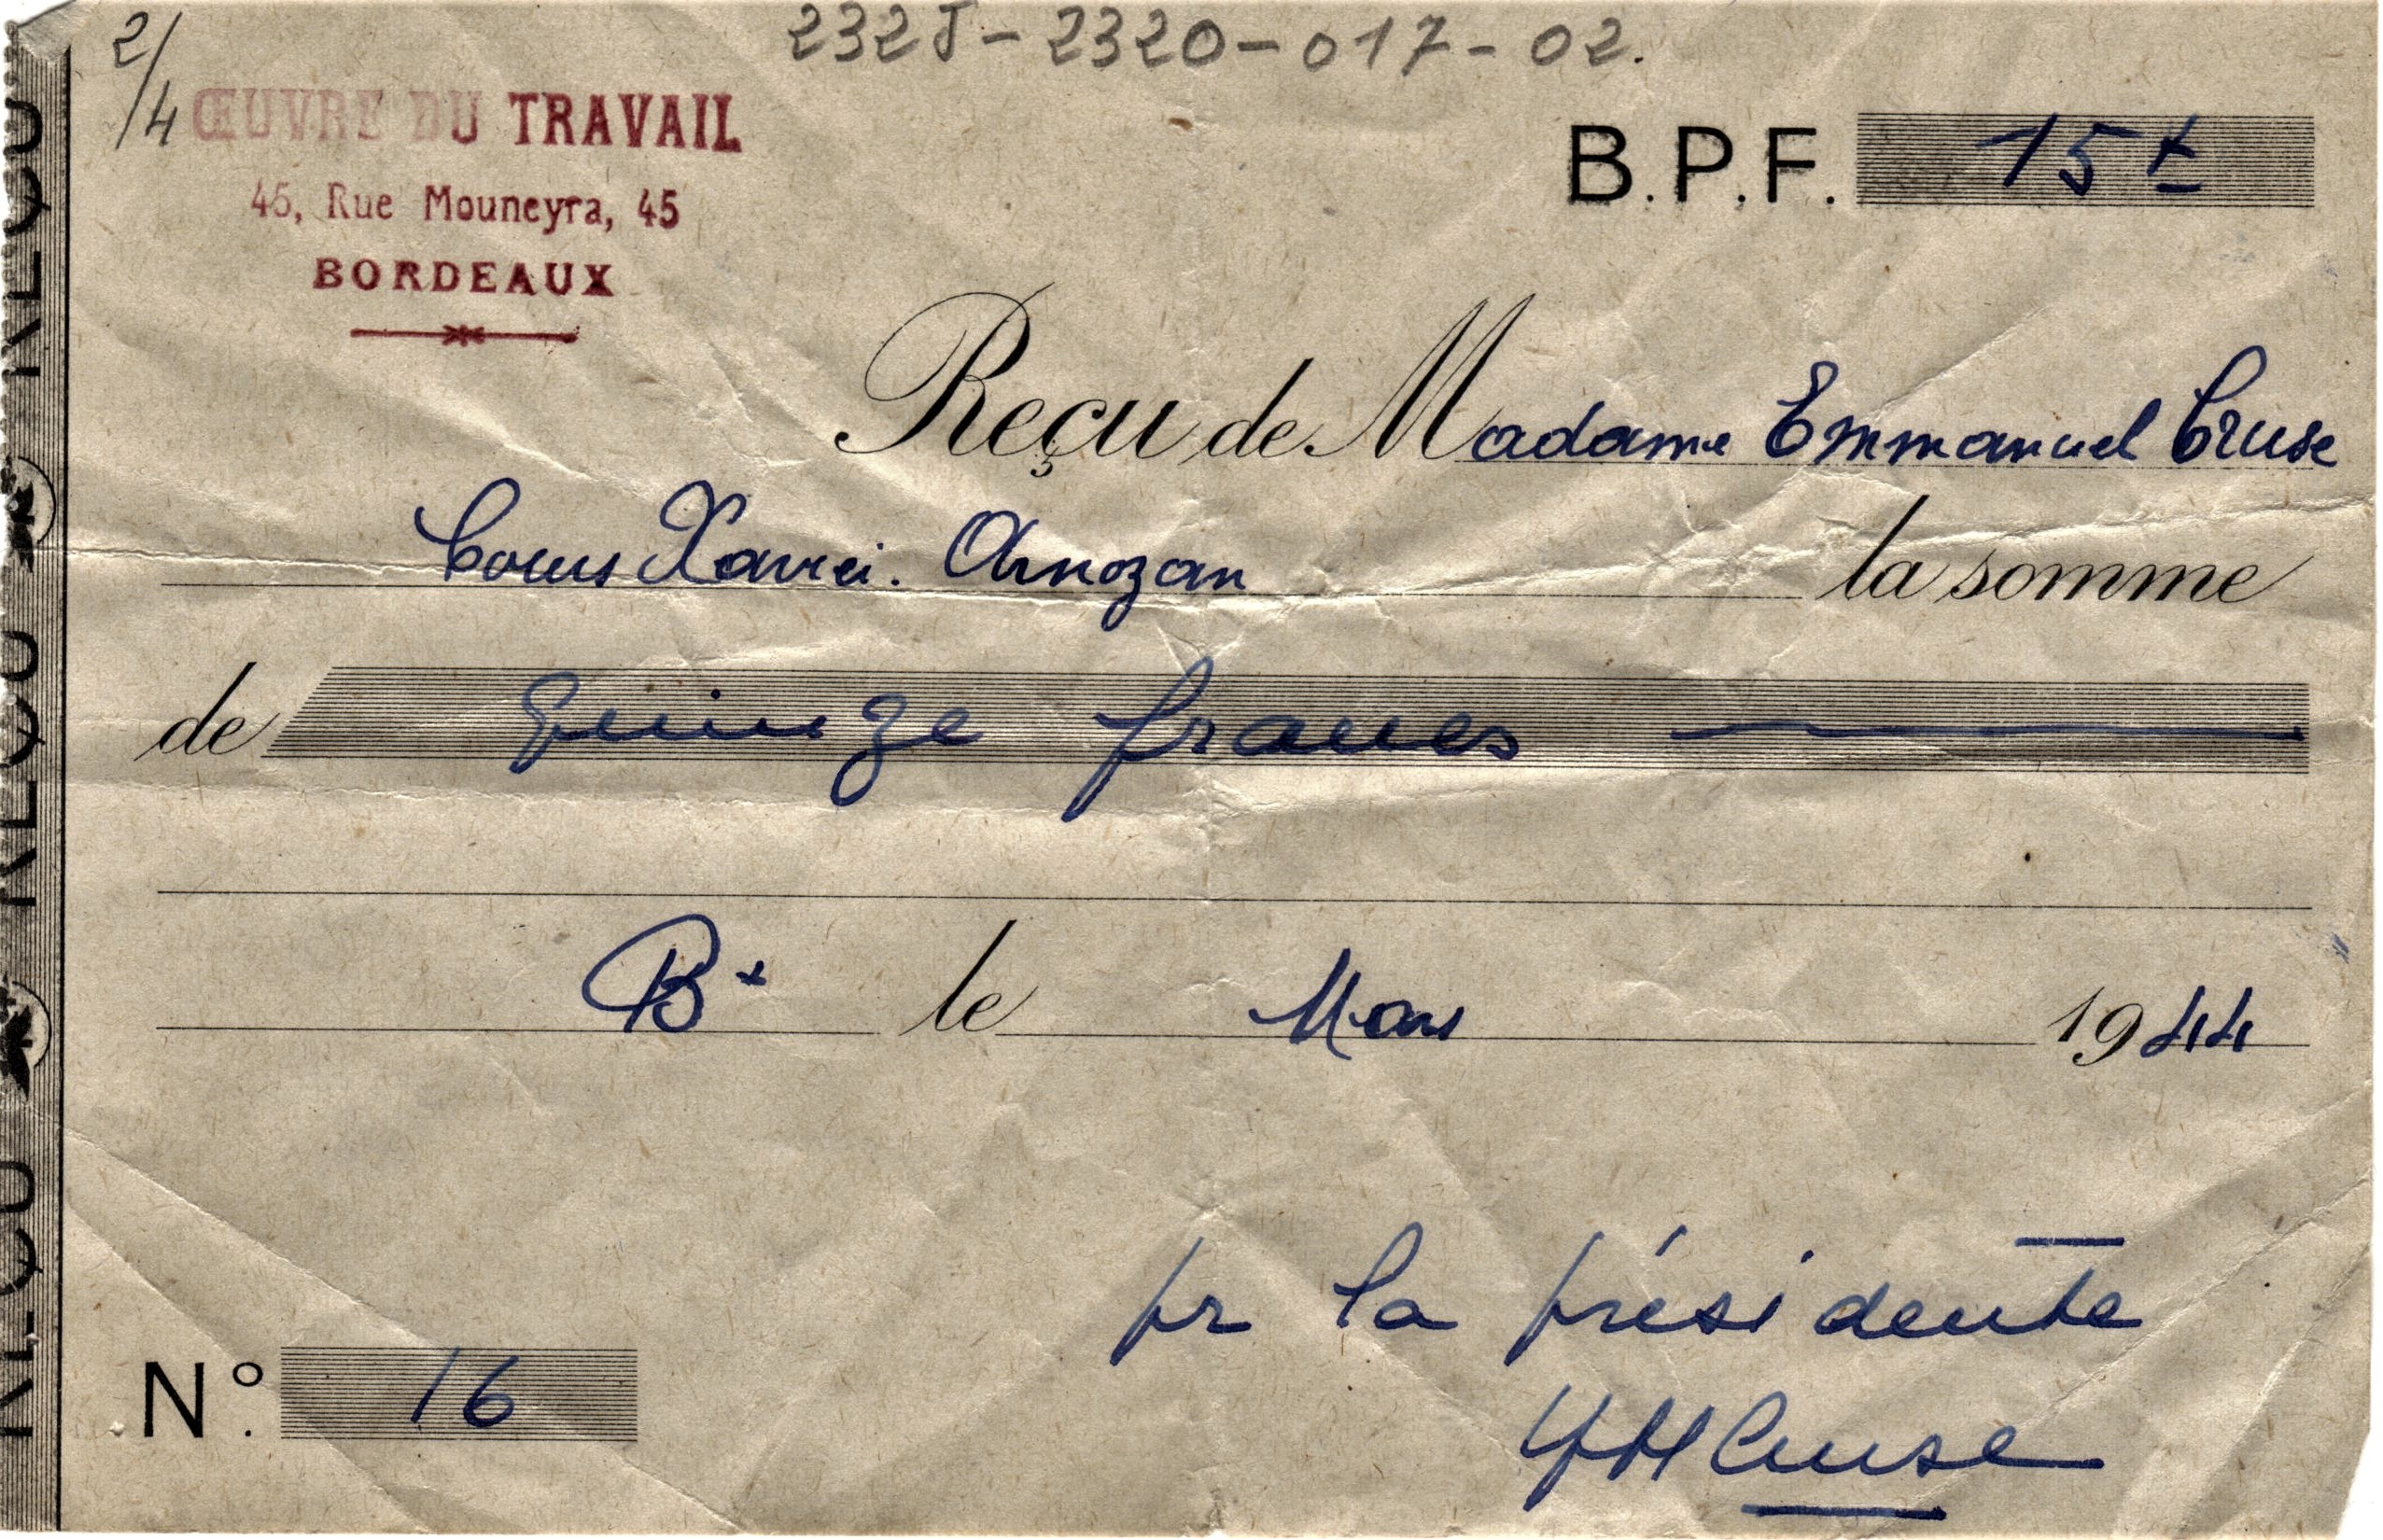 232J-2320-017-02.
2/4
ŒUVRE DU TRAVAIL
45, Rue Mouneyra, 45
BORDEAUX
B.P.F. 15
Reçu de Madame Emmanuel Cruse
Cours Xavier. Arnozan la somme
de quinze francs
Bx le Mars 1944
pr la présidente
Cruse
N° 16
REÇU REÇU REÇU REÇU